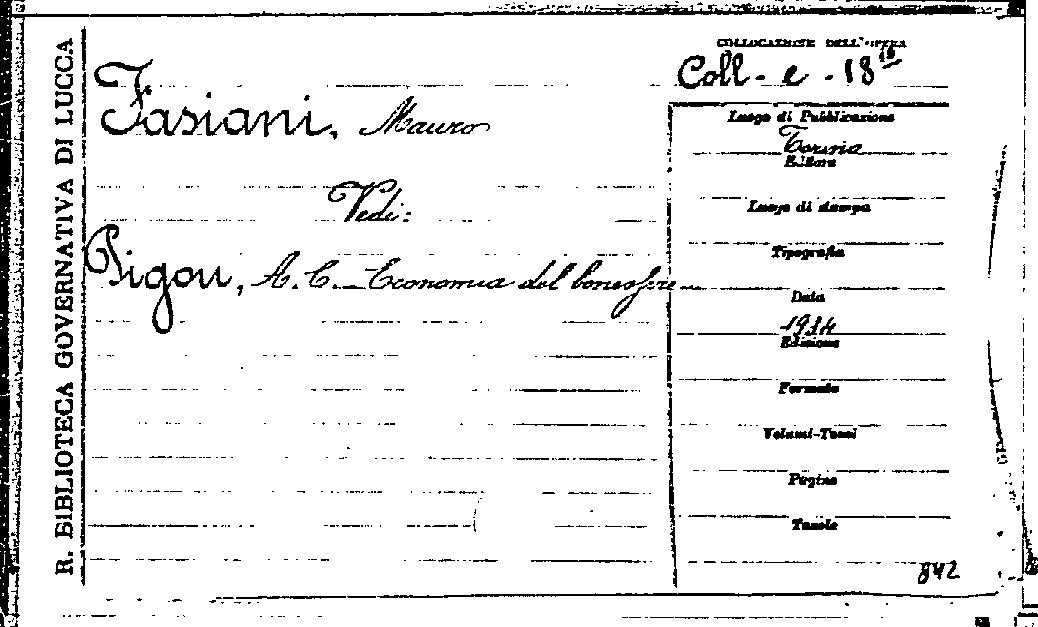 R. BIBLIOTECA GOVERNATIVA DI LUCCA
COLLOCAZIONE DELL'OPERA
Coll - e - 18 10
Fasiani, Mauro
Vedi:
Pigou, A. C. - Economia del benessere -
Luogo di Pubblicazione
Torino
Editore
Luogo di stampa
Tipografia
Data
1934
Edizione
Formato
Volumi-Tomi
Pagine
Tavole
842